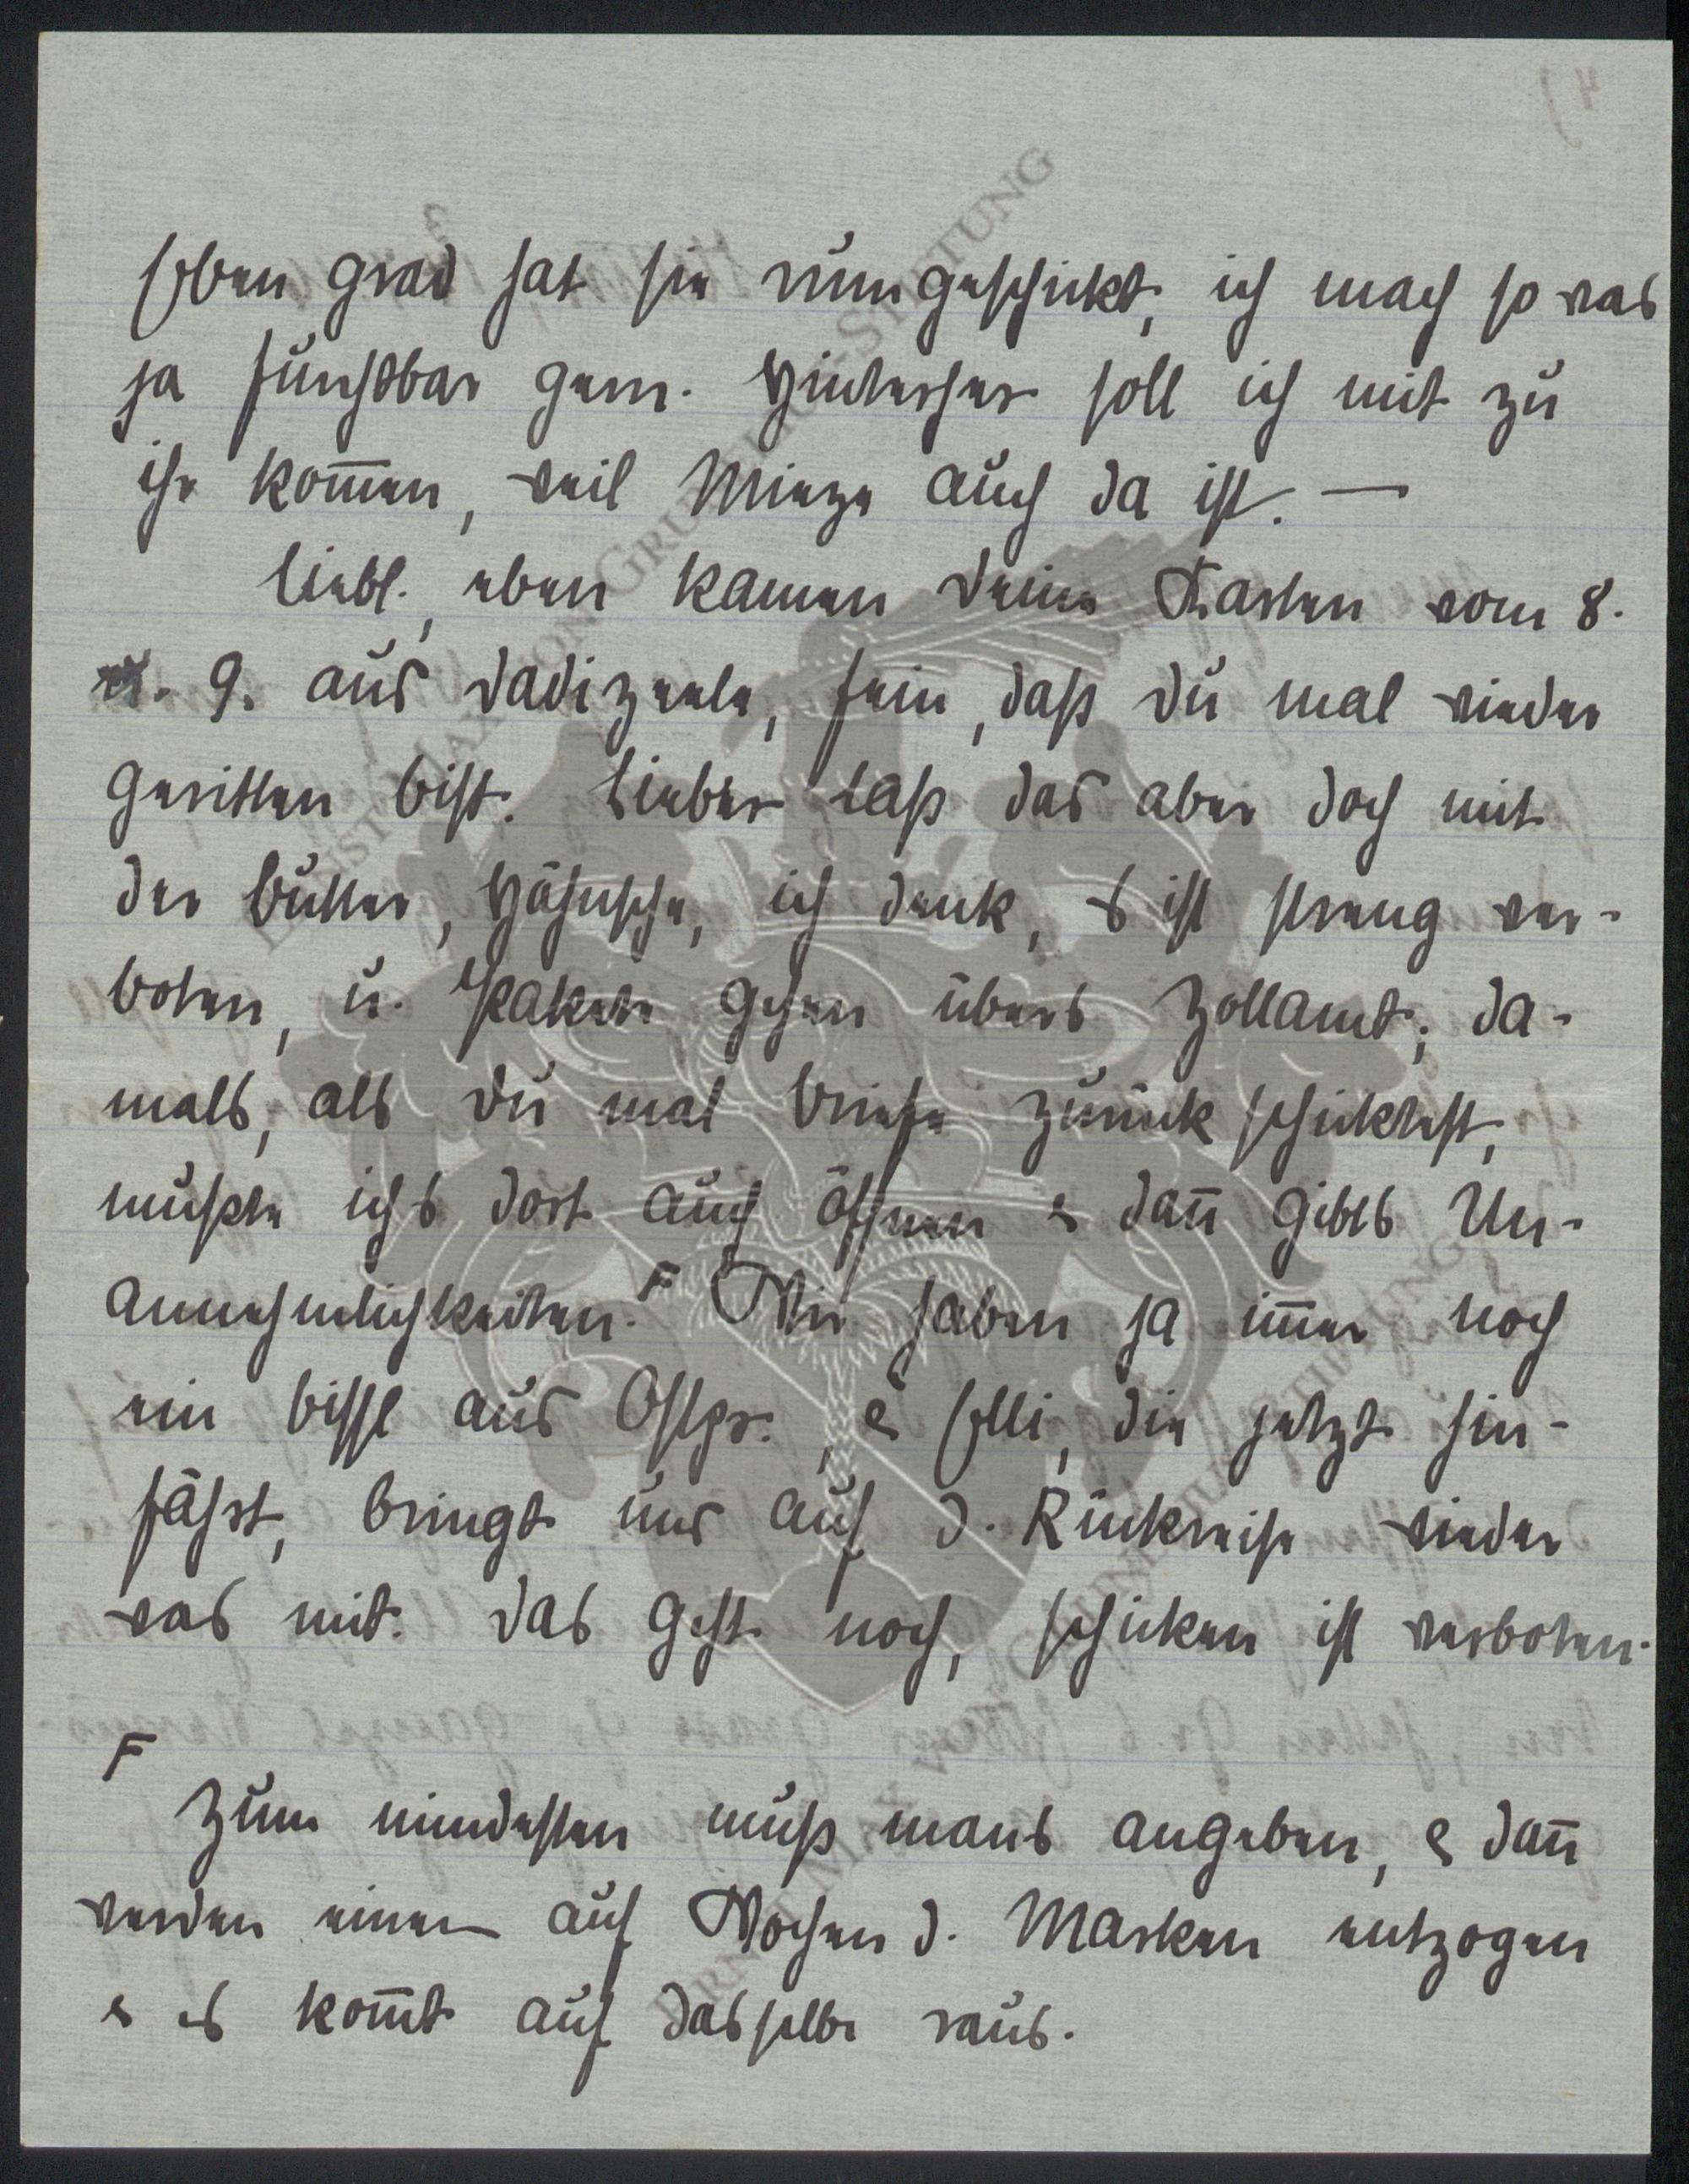 eben grad hat sie rumgeschickt, ich mach so was
ja furchtbar gern. Hinterher soll ich mit zu
ihr kom̅en, weil Mieze auch da ist. —
Liebl., eben kamen deine Karten vom 8.
u. 9. aus Dadizeele, fein, daß du mal wieder
geritten bist. Lieber laß das aber doch mit
der Butter, Hähnsche, ich denk, 's ist streng ver-
boten, u. Pakete gehen übers Zollamt; da-
mals, als du mal Briefe zurück schicktest,
mußte ichs dort auch öffnen & dan̅ gibts Un-
annehmlichkeiten. F Wir haben ja im̅er noch
ein bissl aus Ostpr., & Elli, die jetzt hin-
fährt, bringt uns auf d. Rückreise wieder
was mit. Das geht noch, schicken ist verboten.
F
Zum mindesten muß mans angeben, & dan̅
werden einem auf Wochen d. Marken entzogen
& es kom̅t auf dasselbe raus.